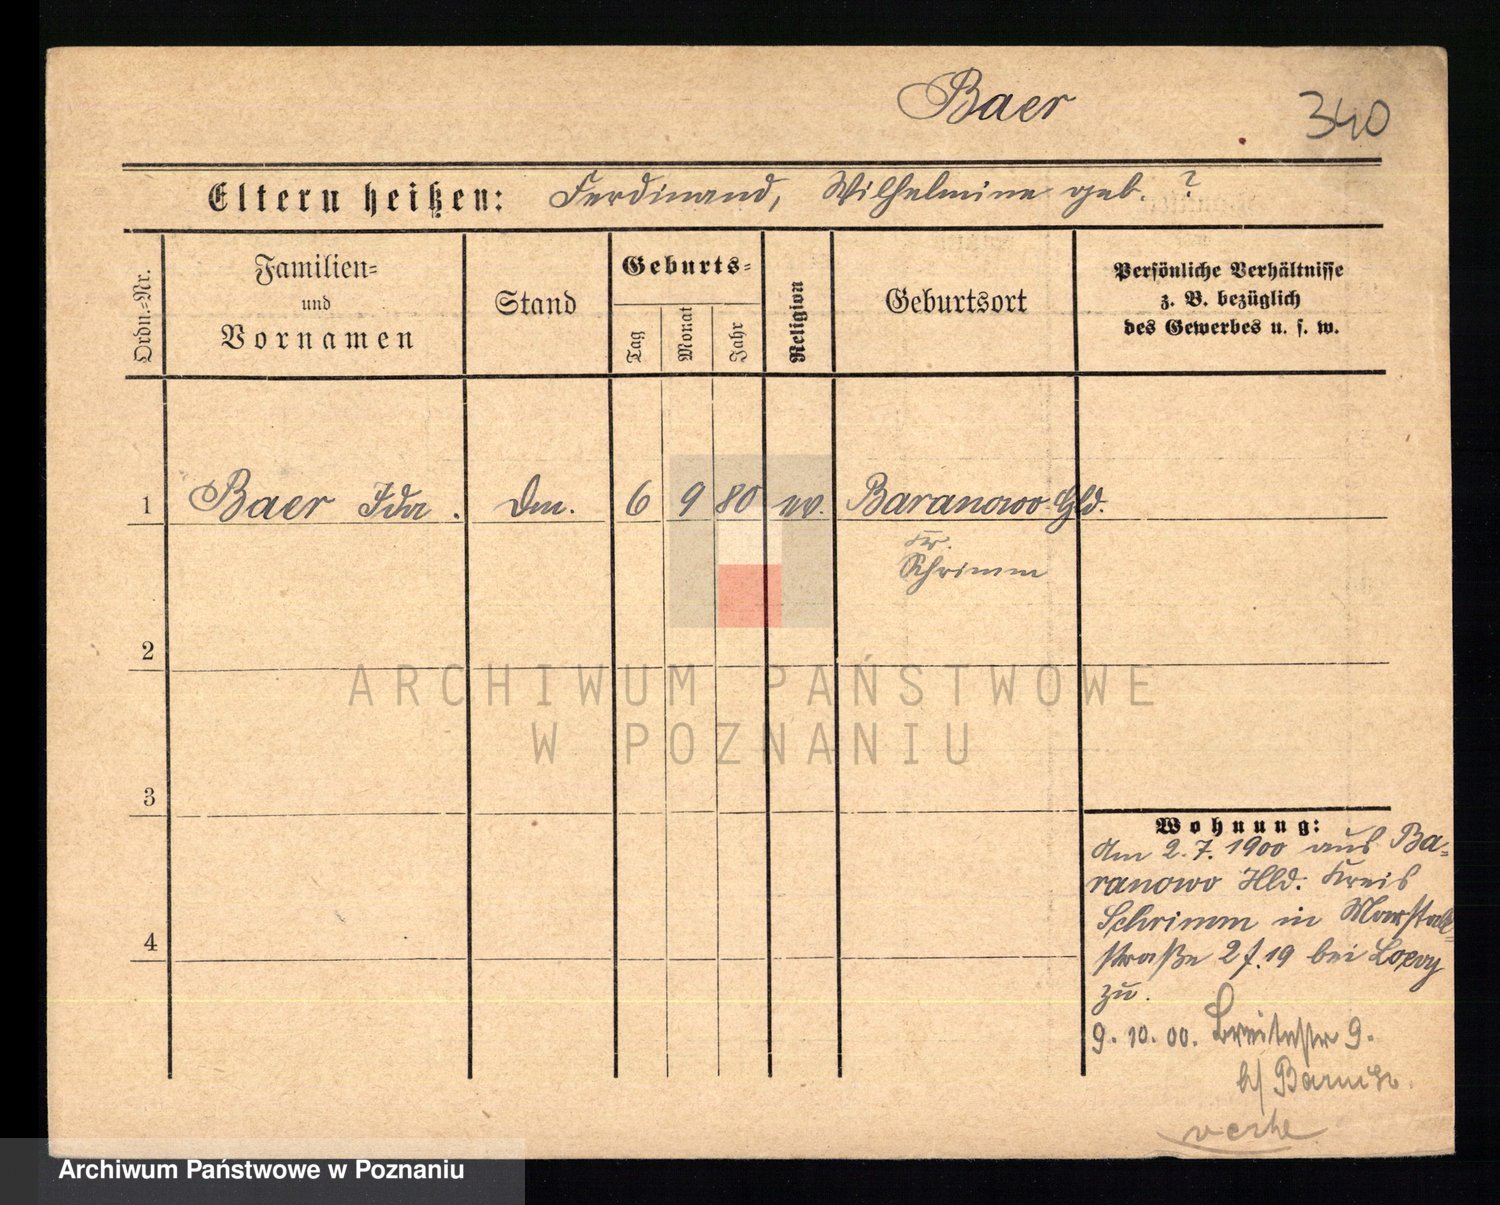 Baer
340
Eltern heißen: Ferdinand, Wilhelmine geb. ?
Ordn.-Nr.
Familien-
und
Vornamen
Stand
Geburts-
Tag
Monat
Jahr
Religion
Geburtsort
Persönliche Verhältnisse
z. B. bezüglich
des Gewerbes u. s. w.
1 Baer Ida. 6 9 80 ev. Baranowo Hld.
Kr.
Schrimm
2
3
4
Wohnung:
Am 2.7.1900 aus Ba-
ranowo Hld. Kreis
Schrimm in Marstall-
straße 19 bei Loevy
zu.
9.10.00. Breitestr 9.
b/
verte
ARCHIWUM PAŃSTWOWE
W POZNANIU
Archiwum Państwowe w Poznaniu